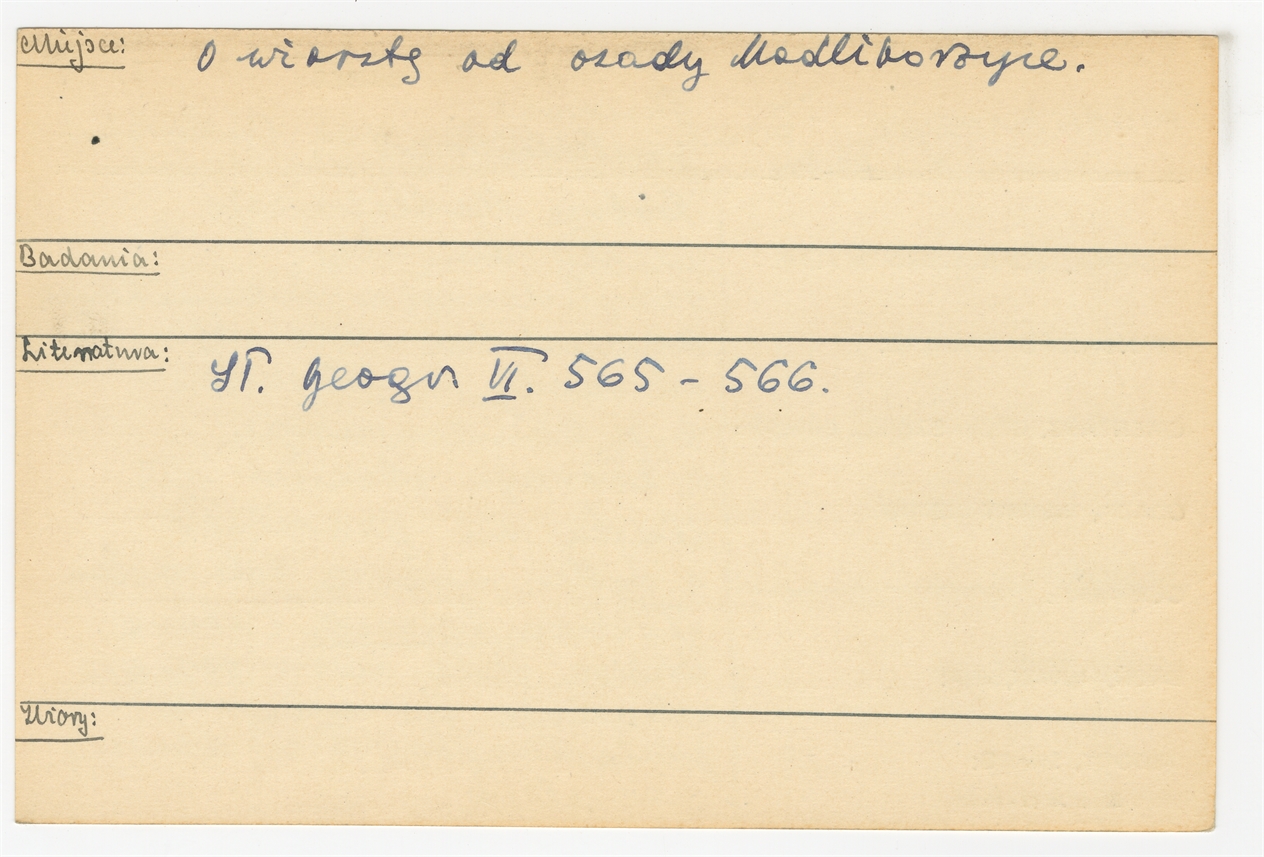 Miejsce: O wiorstę od osady Modliborzyce.
Badania:
Literatura: Sł. geogr VI. 565 - 566.
Zbiory: